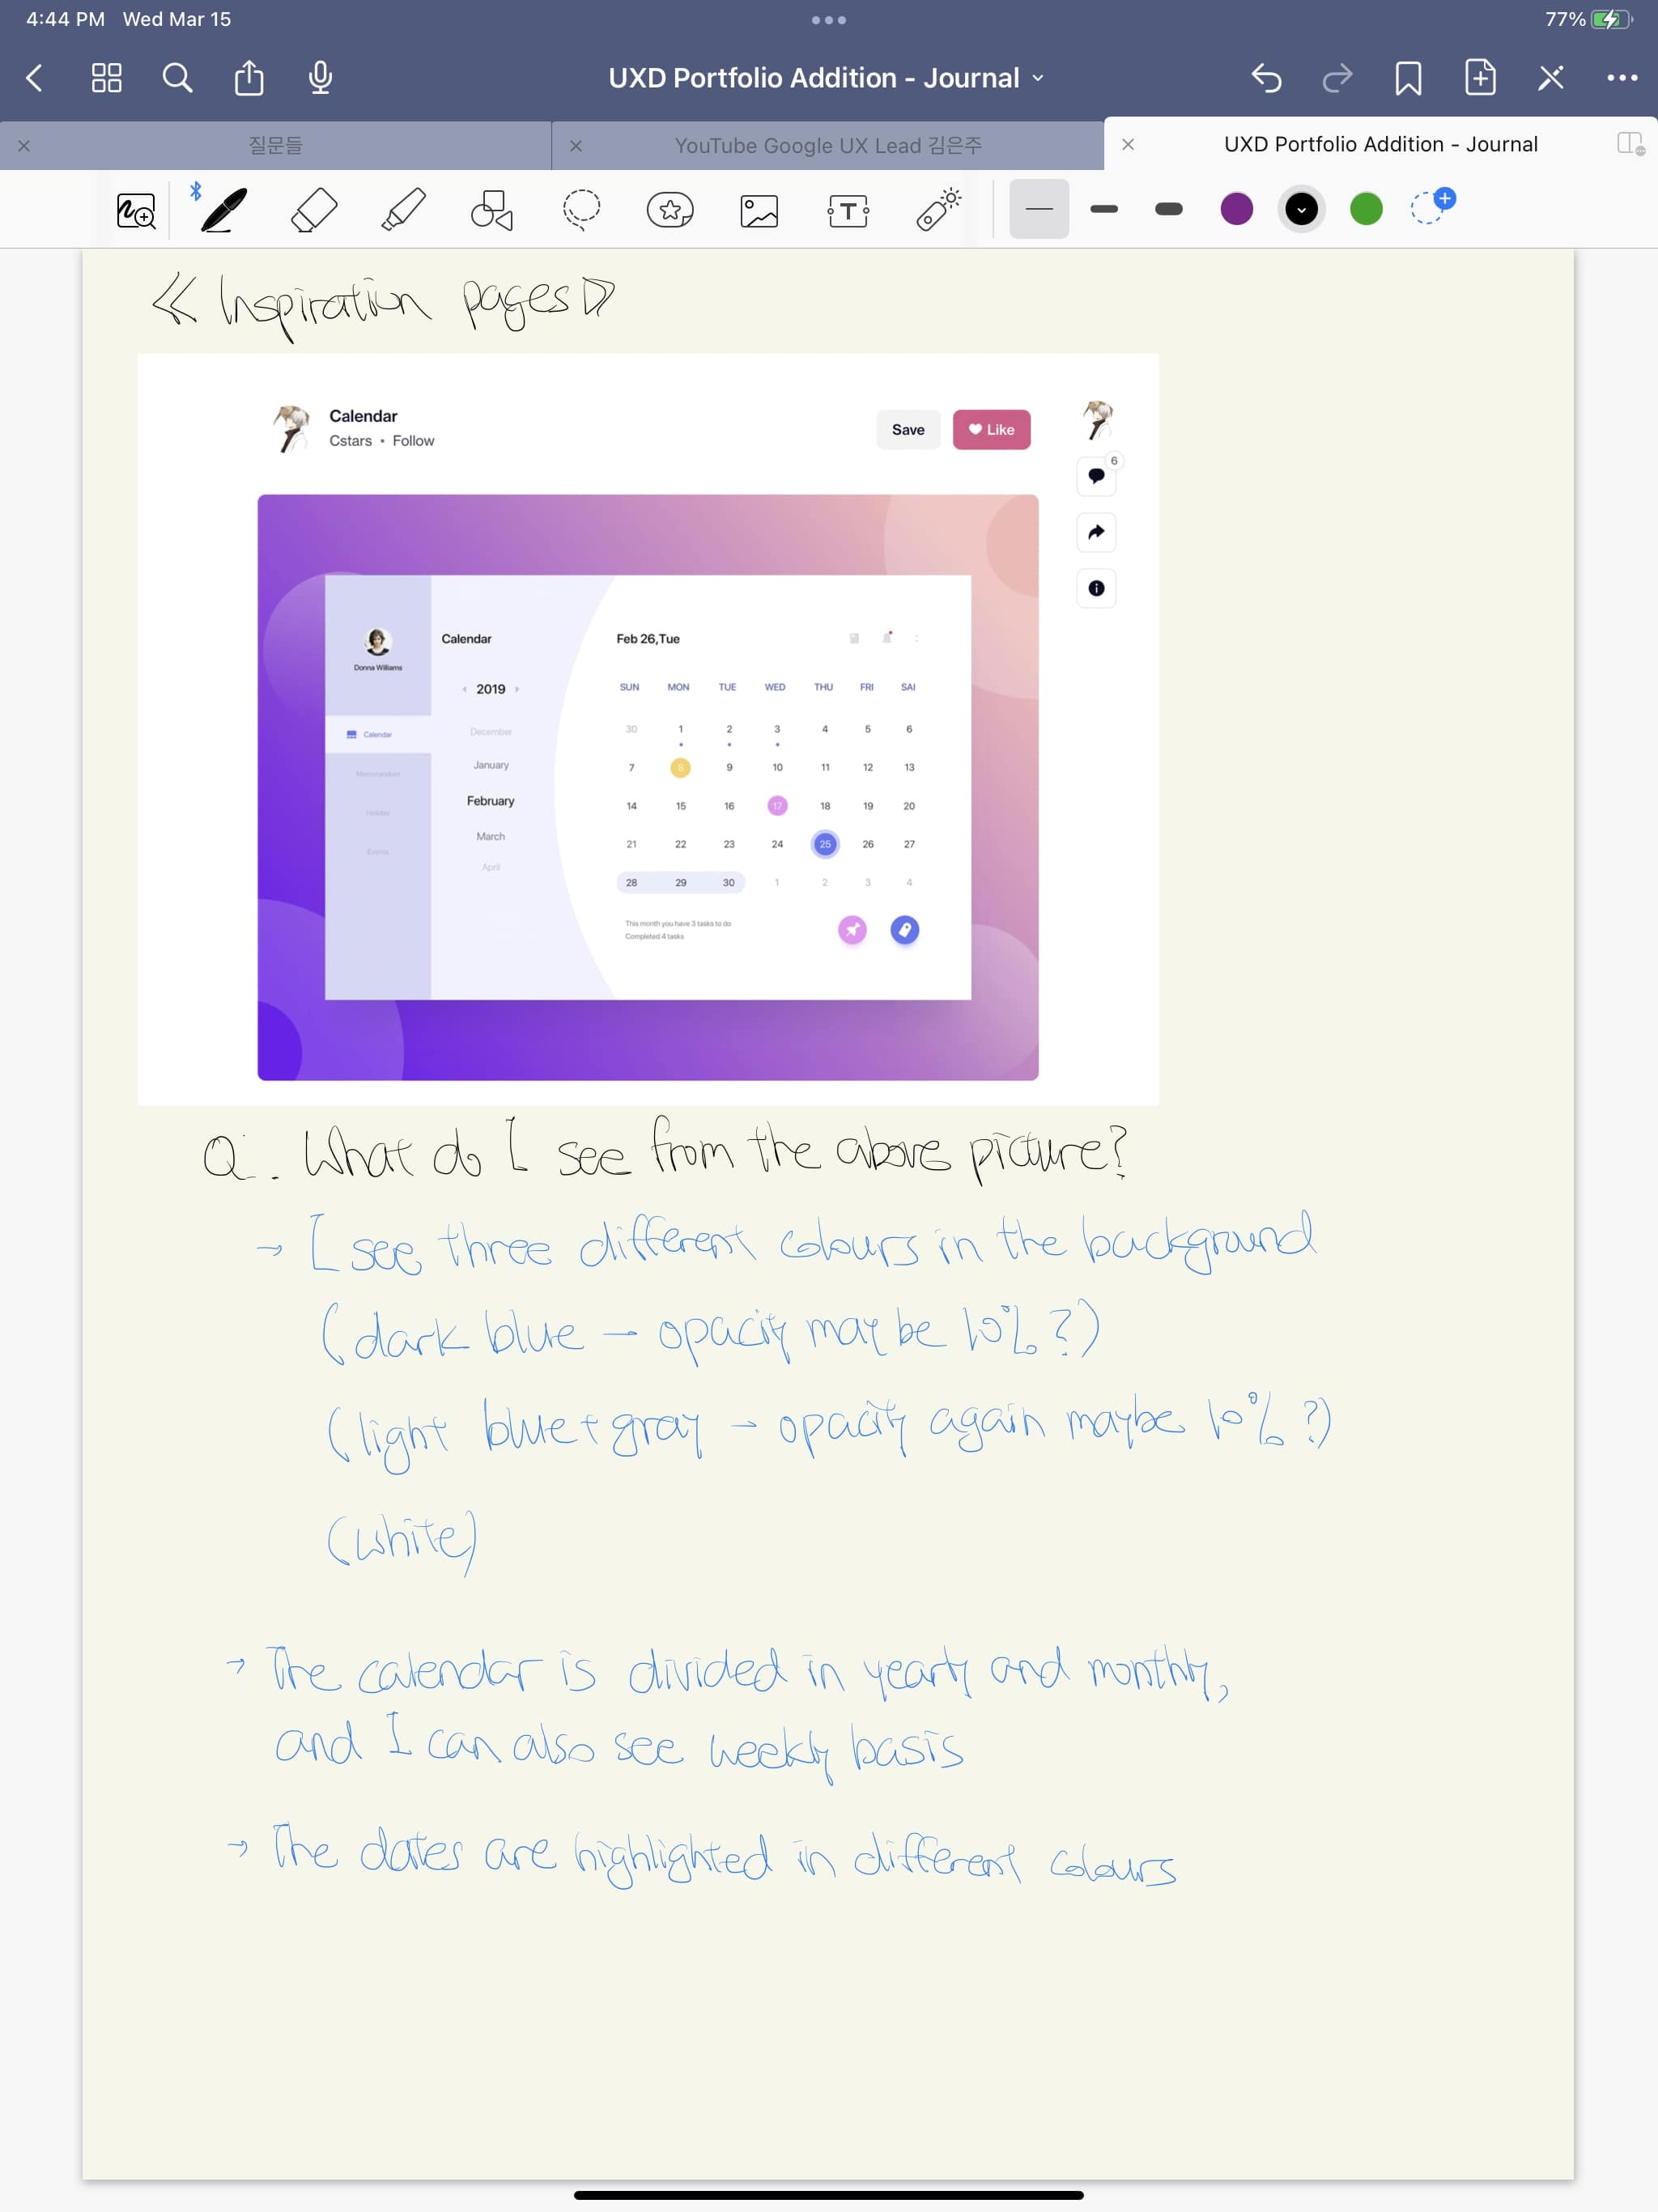 4:44 PM Wed Mar 15
77%
UXD Portfolio Addition - Journal
질문들
YouTube Google UX Lead 김은주
UXD Portfolio Addition - Journal
T
≪ Inspiration pages ≫
Calendar
Cstars • Follow
Save
Like
6
Donna Williams
Calendar
Memorandum
Holiday
Events
Calendar
2019
December
January
February
March
April
Feb 26,Tue
SUN MON TUE WED THU FRI SAI
30 1 2 3 4 5 6
7 8 9 10 11 12 13
14 15 16 17 18 19 20
21 22 23 24 25 26 27
28 29 30 1 2 3 4
This month you have 3 tasks to do
Completed 4 tasks
Q. What do I see from the above picture?
→ I see three different colours in the background
(dark blue → opacity maybe 10%?)
(light blue + gray → opacity again maybe 10%?)
(white)
→ The calendar is divided in yearly and monthly,
and I can also see weekly basis
→ The dates are highlighted in different colours